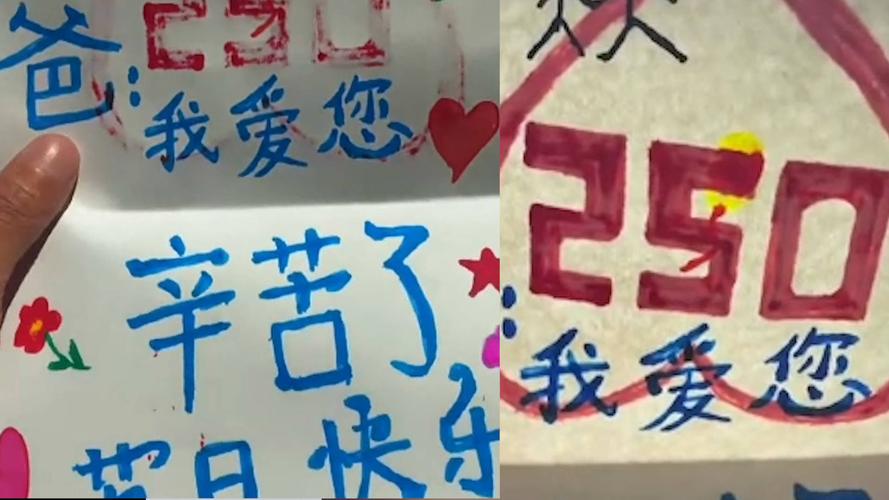 250
爸:
我爱您
辛苦了
节日快乐
250
:
我爱您